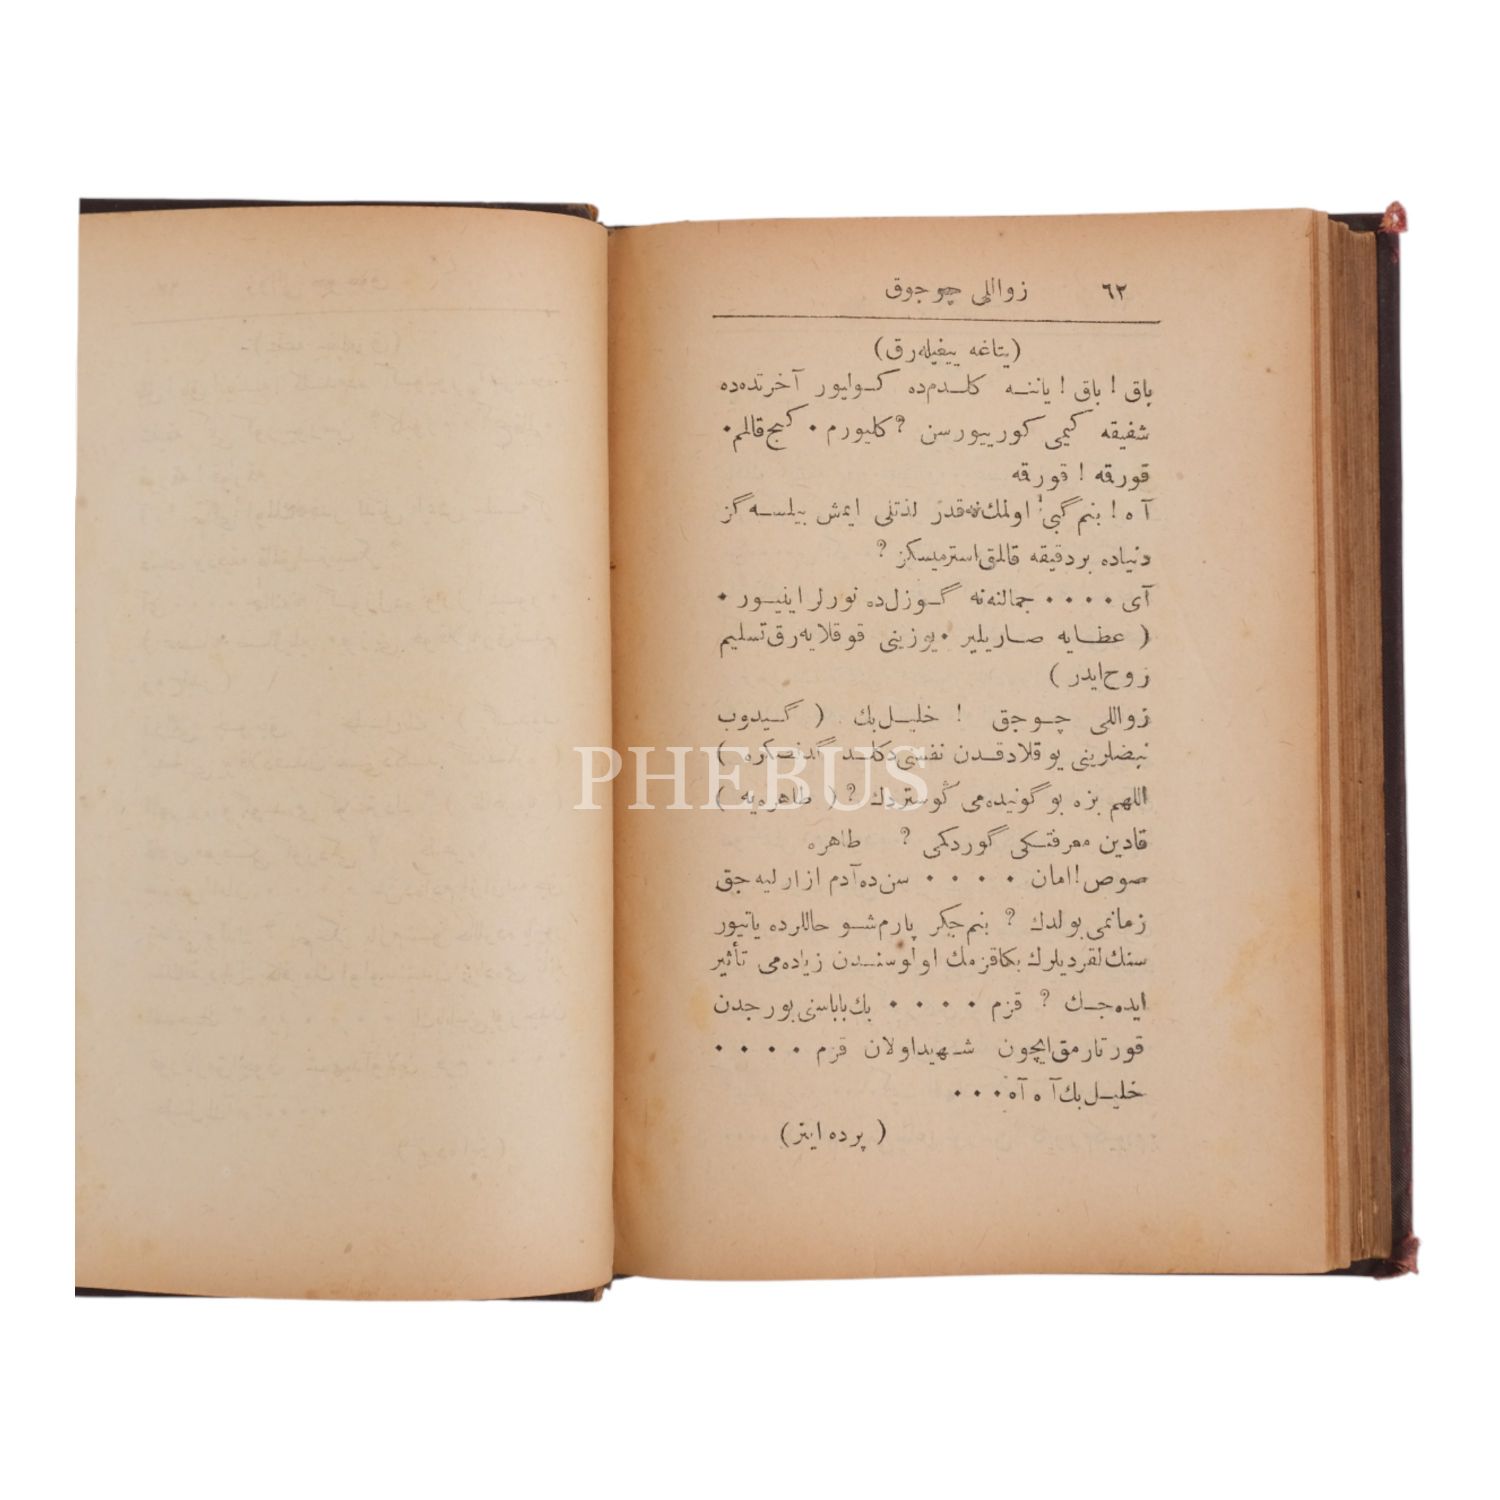 ٦٢ زواللی چوجوق
(یتاغه ییغیله‌رق)
باق! باق! یاننـه كلـدم‌ده كـولیور آخرتده‌ده
شفیقه كیمی كوریيورسن ؟ كلیورم ۰ كیج قالم ۰
قورقه ! قورقه
آه! بنم گبی! اولمك نه‌قدر لذتلی ایمش بیلسـه‌گز
دنیاده بردقیقه قالمق استرمیسكز ؟
آی ۰۰۰۰ جمالنه نه گـوزل‌ده نورلر اینیـور ۰
( عطـایه صـاریلیر ۰ یوزینی قوقلایه‌رق تسلیم
روح ایدر )
زواللی چـوجق ! خلیـل‌بك ( گـیدوب
نبضلرینی یوقلادقـدن نفسنی دكلـد گدنصكره )
اللهم بزه بو گونیده‌می گوستردك ؟ ( طاهره‌یه )
قادین معرفتـكی گوردكمی ؟ طاهره
صوص! امان ۰۰۰۰ سن‌ده آدم ازارلیه جق
زمانمی بولدك ؟ بنم جكر پارم شـو حاللرده یاتیور
سنك لقردیلرك بكا قزمك اولوسنـدن زیاده‌می تأثیر
ایده‌جـك ؟ قزم ۰۰۰۰ بك باباسنی بورجدن
قورتارمق ایچون شـهید اولان قزم ۰۰۰۰
خلیـل بك آه آه ۰۰۰
( پرده اینر )
PHEBUS